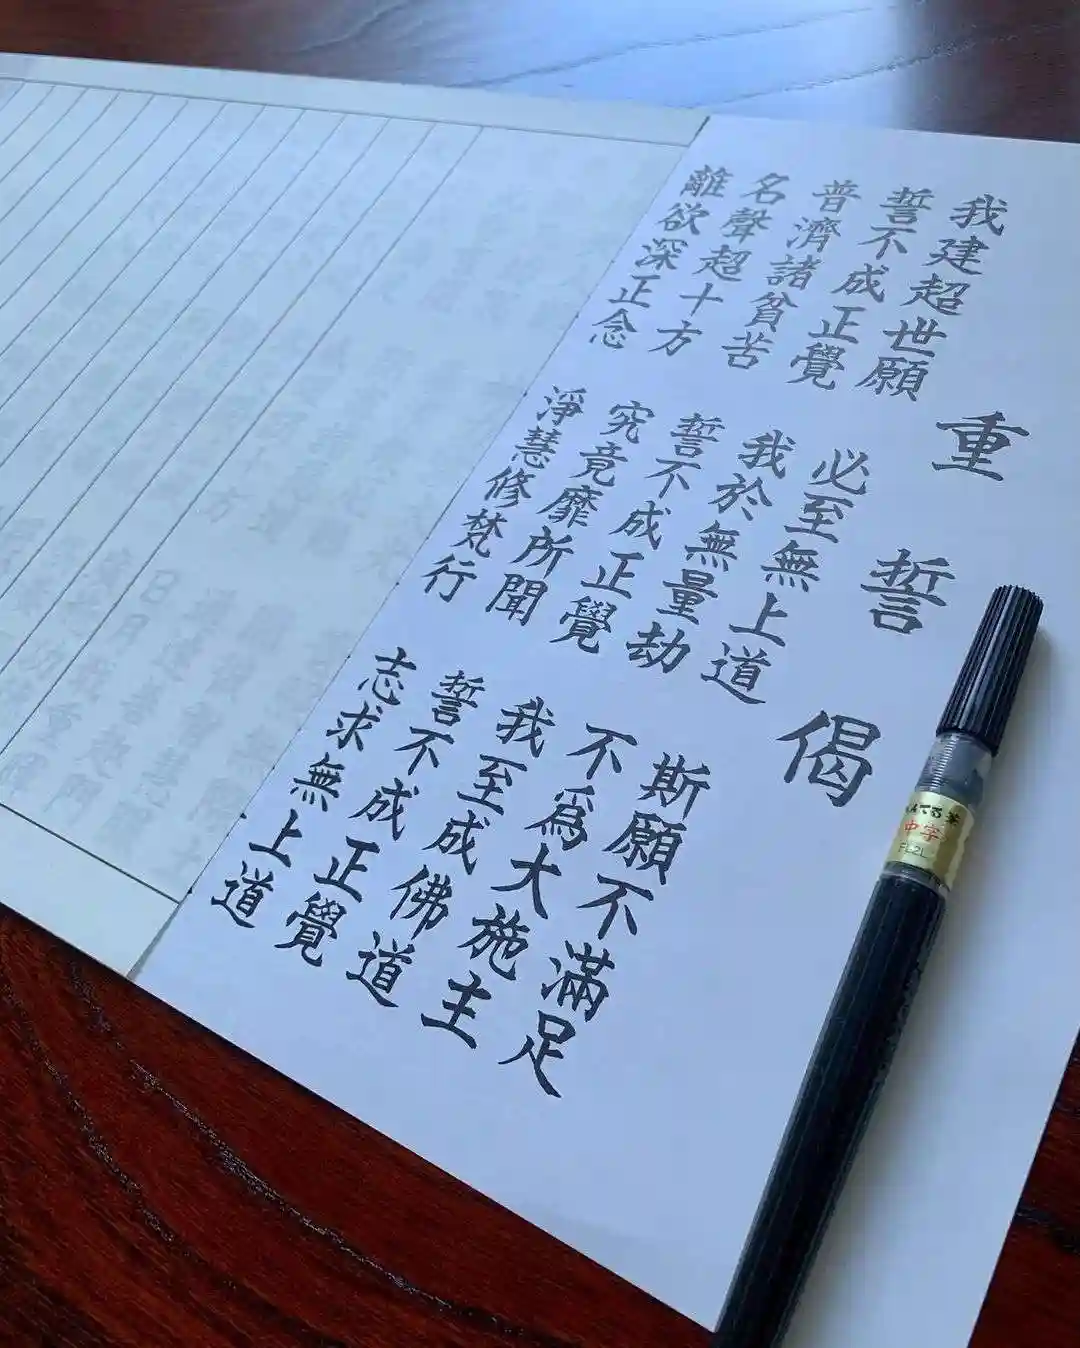 重誓偈
我建超世願 必至無上道 斯願不滿足
誓不成正覺 我於無量劫 不爲大施主
普濟諸貧苦 誓不成正覺 我至成佛道
名聲超十方 究竟靡所聞 誓不成正覺
離欲深正念 淨慧修梵行 志求無上道
んてる筆
中字
FL2L